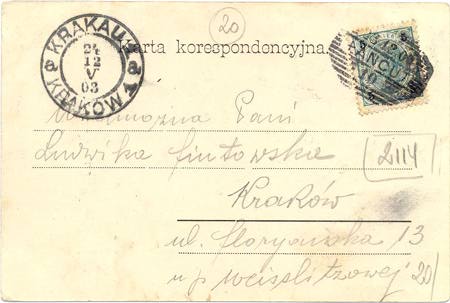 20
KRAKAU 1
24
12
V
03
a a
KRAKÓW 1
Karta korespondencyjna.
12
ŁAŃCUT
10
5 5
Wielmożna Pani
Ludwika Gutowska
2114
Kraków
ul. Floryańska 13
u p Weisslitzowej
20